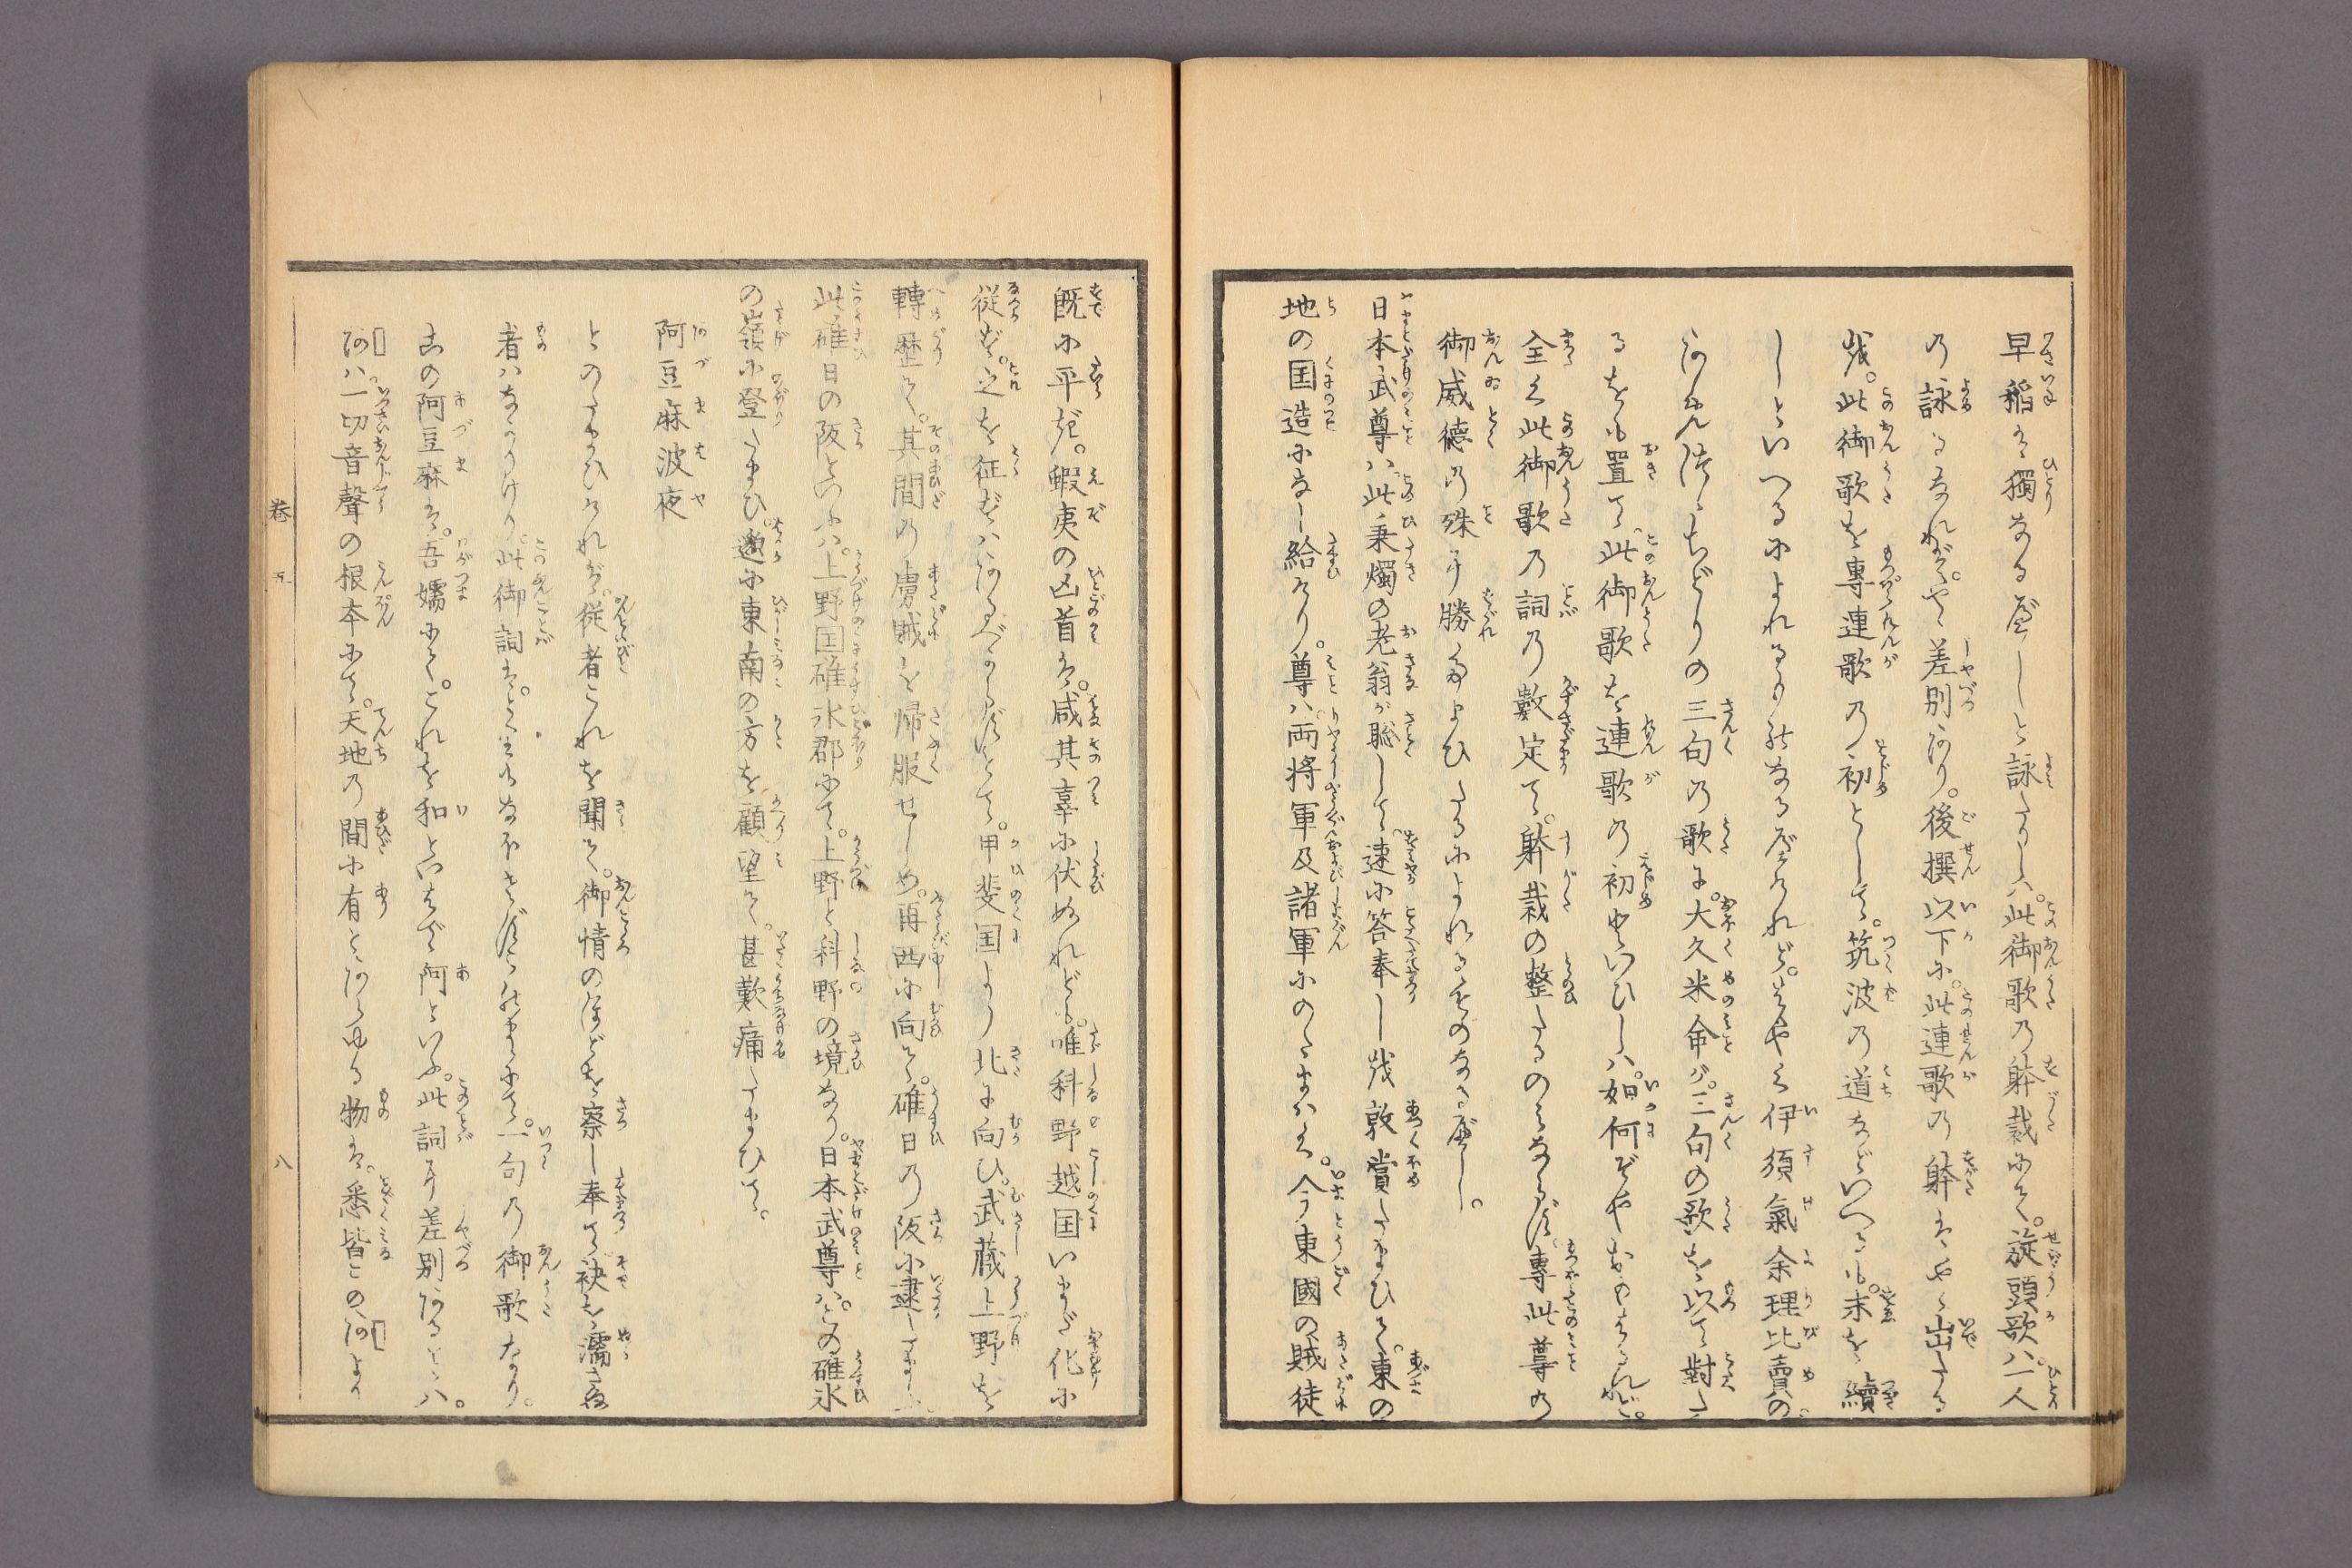 早稲は獨なるべしと詠たりしハ。此御歌乃躰裁にて。旋頭歌ハ一人
乃詠るなれバ。やゝ差別あり。後撰以下に。此連歌乃躰はやゝ出たる
哉。此御歌を專連歌乃初として。筑波乃道などいへるも。末を續
しといへるによれるなるべけれど。はやく伊須氣余理比賣の
三句乃歌に。大久米命が。三句の歌を以て對た
るをも置て。此御歌を連歌乃初とハいひしハ。如何ぞや
全く此御歌乃詞乃數定て。躰裁の整たるのミならず。專此尊乃
御威德乃殊に勝たまひたるによれるものなるべし。
日本武尊ハ。此秉燭の老翁が聡して。速に答奉し哉敦賞たまひて。東の
地の国造になし給へり。尊ハ。両將軍及諸軍にのたまハく。今東國の賊徒
既に平ぎ。蝦夷の凶首は。咸其辜に伏ぬれども。唯科野越国いまだ化に
従ず。之を征ずハあるべからずとて。甲斐国より北に向ひ。武蔵上野を
轉歴て。其間乃虜賊を帰服せしめ。再西に向て。碓日乃阪に逮たまふ。
此碓日の阪といふハ。上野国碓氷郡にて。上野と科野の境なり。日本武尊ハ。この碓氷
の嶺に登たまひ。遙に東南の方を顧望て。甚歎痛たまひて。
阿豆麻波夜
とのたまひければ。従者これを聞て。御情のほどを察し奉て袂を濡さぬ
者ハなかりけり。此御詞は。一句乃御歌なり。
この阿豆麻は。吾嬬にて。これを和といはで阿といふ。此詞に差別あることハ。
阿ハ一切音聲の根本にて。天地乃間に有とあらゆる物は。悉皆この阿より
卷五
八